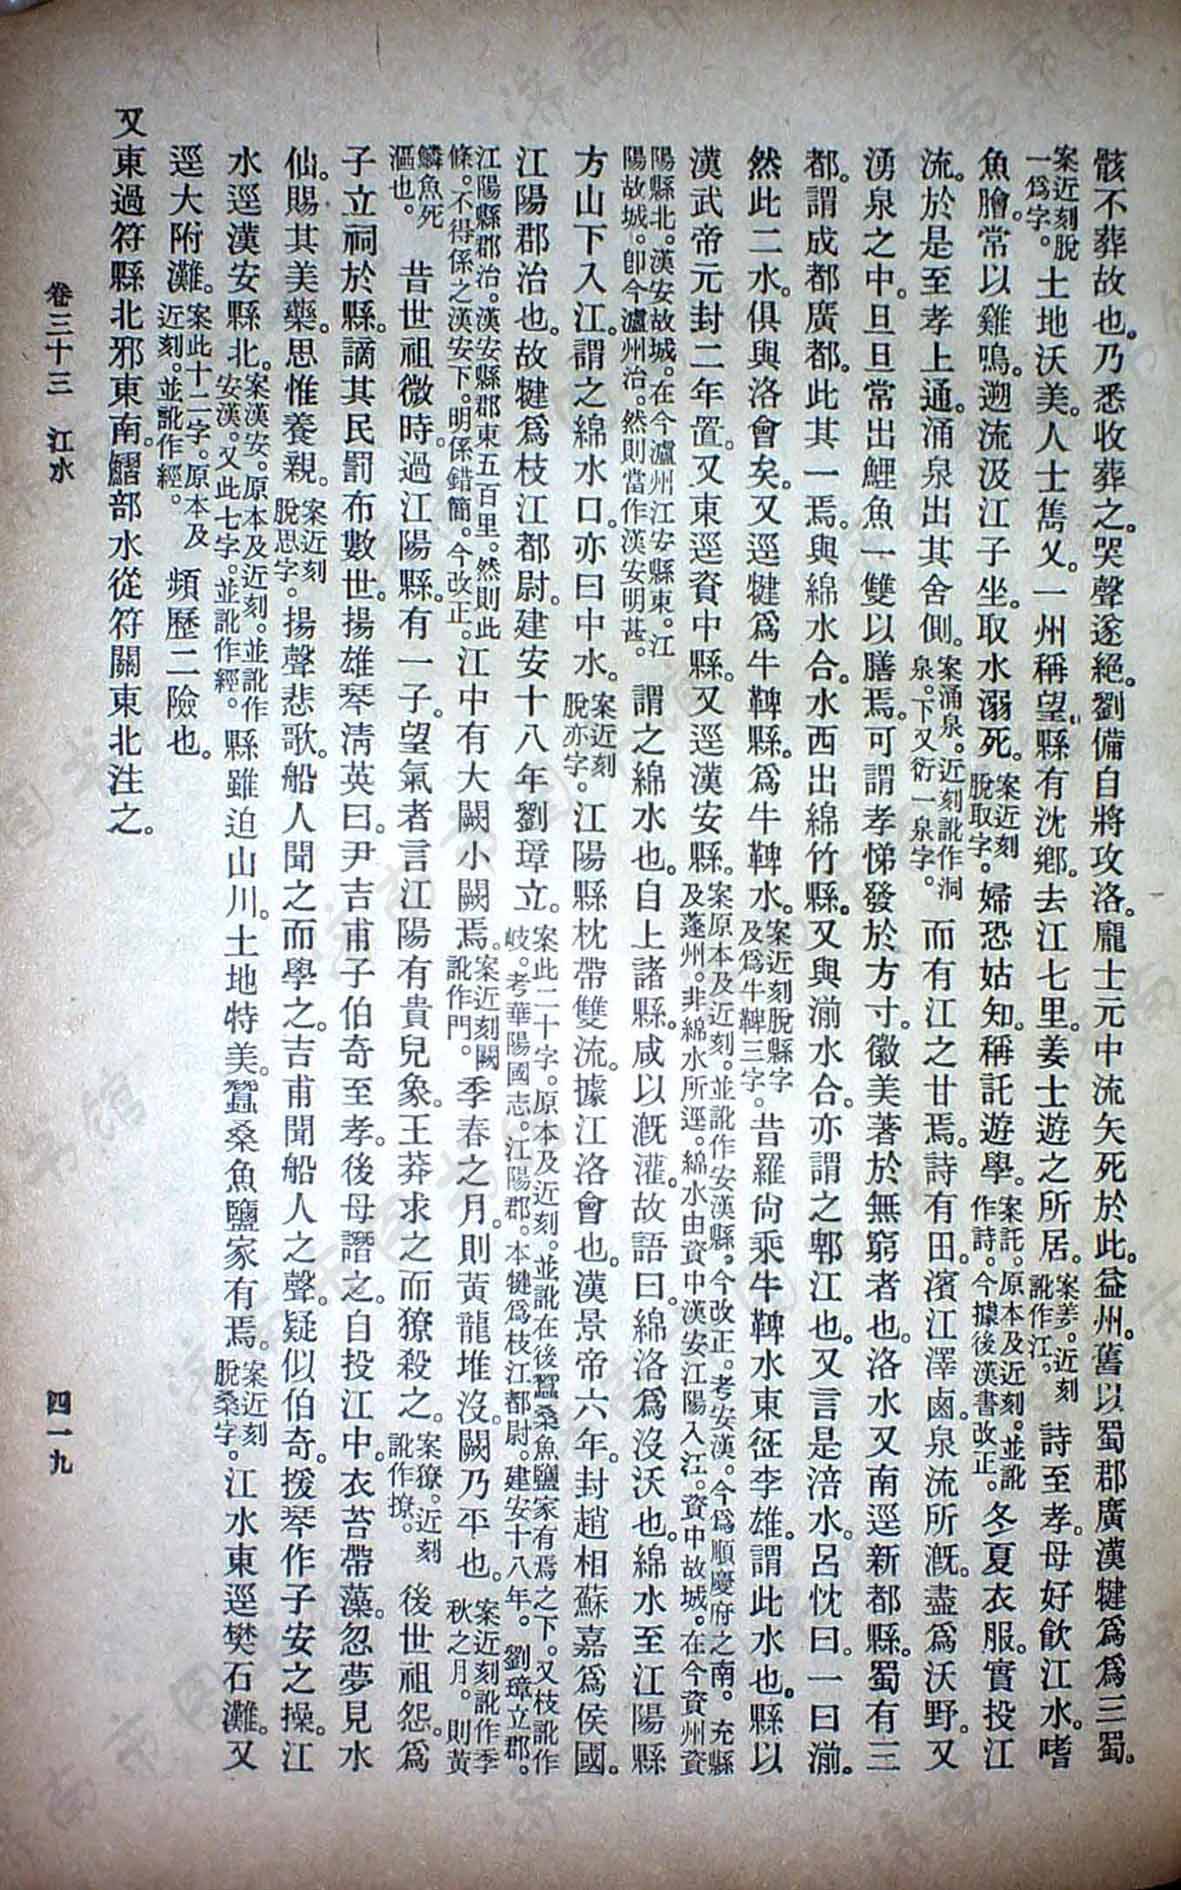 骸不葬故也。乃悉收葬之。哭聲遂絕。劉備自將攻洛。龐士元中流矢死於此。益州。舊以蜀郡廣漢犍爲爲三蜀。
案近刻脫一爲字。土地沃美。人士雋乂。一州稱望。縣有沈鄉。去江七里。姜士遊之所居。案姜。近刻訛作江。詩至孝。母好飲江水。嗜
魚膾。常以雞鳴。遡流汲江子坐。取水溺死。案近刻脫取字。婦恐姑知。稱託遊學。案託。原本及近刻。並訛作詩。今據後漢書改正。冬夏衣服。實投江
流。於是至孝上通。涌泉出其舍側。案涌泉。近刻訛作洞泉。下又衍一泉字。而有江之甘焉。詩有田。濱江澤鹵。泉流所溉。盡爲沃野。又
湧泉之中。旦旦常出鯉魚一雙以膳焉。可謂孝悌發於方寸。徽美著於無窮者也。洛水又南逕新都縣。蜀有三
都。謂成都廣都。此其一焉。與綿水合。水西出綿竹縣。又與湔水合。亦謂之郫江也。又言是涪水。呂忱曰。一曰湔。
然此二水。俱與洛會矣。又逕犍爲牛鞞縣。爲牛鞞水。案近刻脫縣字及爲牛鞞三字。昔羅尙乘牛鞞水東征李雄。謂此水也。縣以
漢武帝元封二年置。又東逕資中縣。又逕漢安縣。案原本及近刻。並訛作安漢縣。今改正。考安漢。今爲順慶府之南。充縣及蓬州。非綿水所逕。綿水由資中漢安江陽入江。資中故城。在今資州資
陽縣北。漢安故城。在今瀘州江安縣東。江陽故城。卽今瀘州治。然則當作漢安明甚。謂之綿水也。自上諸縣。咸以溉灌。故語曰。綿洛爲沒沃也。綿水至江陽縣
方山下入江。謂之綿水口。亦曰中水。案近刻脫亦字。江陽縣枕帶雙流。據江洛會也。漢景帝六年。封趙相蘇嘉爲侯國。
江陽郡治也。故犍爲枝江都尉。建安十八年劉璋立。案此二十字。原本及近刻。並訛在後蠶桑魚鹽家有焉之下。又枝訛作岐。考華陽國志。江陽郡。本犍爲枝江都尉。建安十八年。劉璋立郡。
江陽縣郡治。漢安縣郡東五百里。然則此條。不得係之漢安下。明係錯簡。今改正。江中有大闕小闕焉。案近刻闕訛作門。季春之月。則黃龍堆沒。闕乃平也。案近刻訛作季秋之月。則黃
鱗魚死漚也。昔世祖微時。過江陽縣。有一子。望氣者言江陽有貴兒象。王莽求之而獠殺之。案獠。近刻訛作撩。後世祖怨。爲
子立祠於縣。謫其民罰布數世。揚雄琴淸英曰。尹吉甫子伯奇至孝。後母譖之。自投江中。衣苔帶藻。忽夢見水
仙。賜其美藥。思惟養親。案近刻脫思字。揚聲悲歌。船人聞之而學之。吉甫聞船人之聲。疑似伯奇。援琴作子安之操。江
水逕漢安縣北。案漢安。原本及近刻。並訛作安漢。又此七字。並訛作經。縣雖迫山川。土地特美。蠶桑魚鹽家有焉。案近刻脫桑字。江水東逕樊石灘。又
逕大附灘。案此十二字。原本及近刻。並訛作經。頻歷二險也。
又東過符縣北邪東南。鰼部水從符關東北注之。
卷三十三 江水 四一九